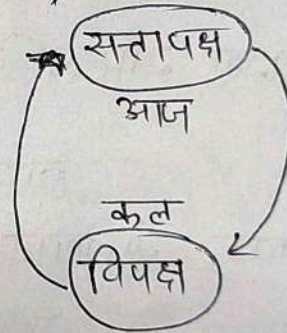 सत्तापक्ष
आज
कल
विपक्ष